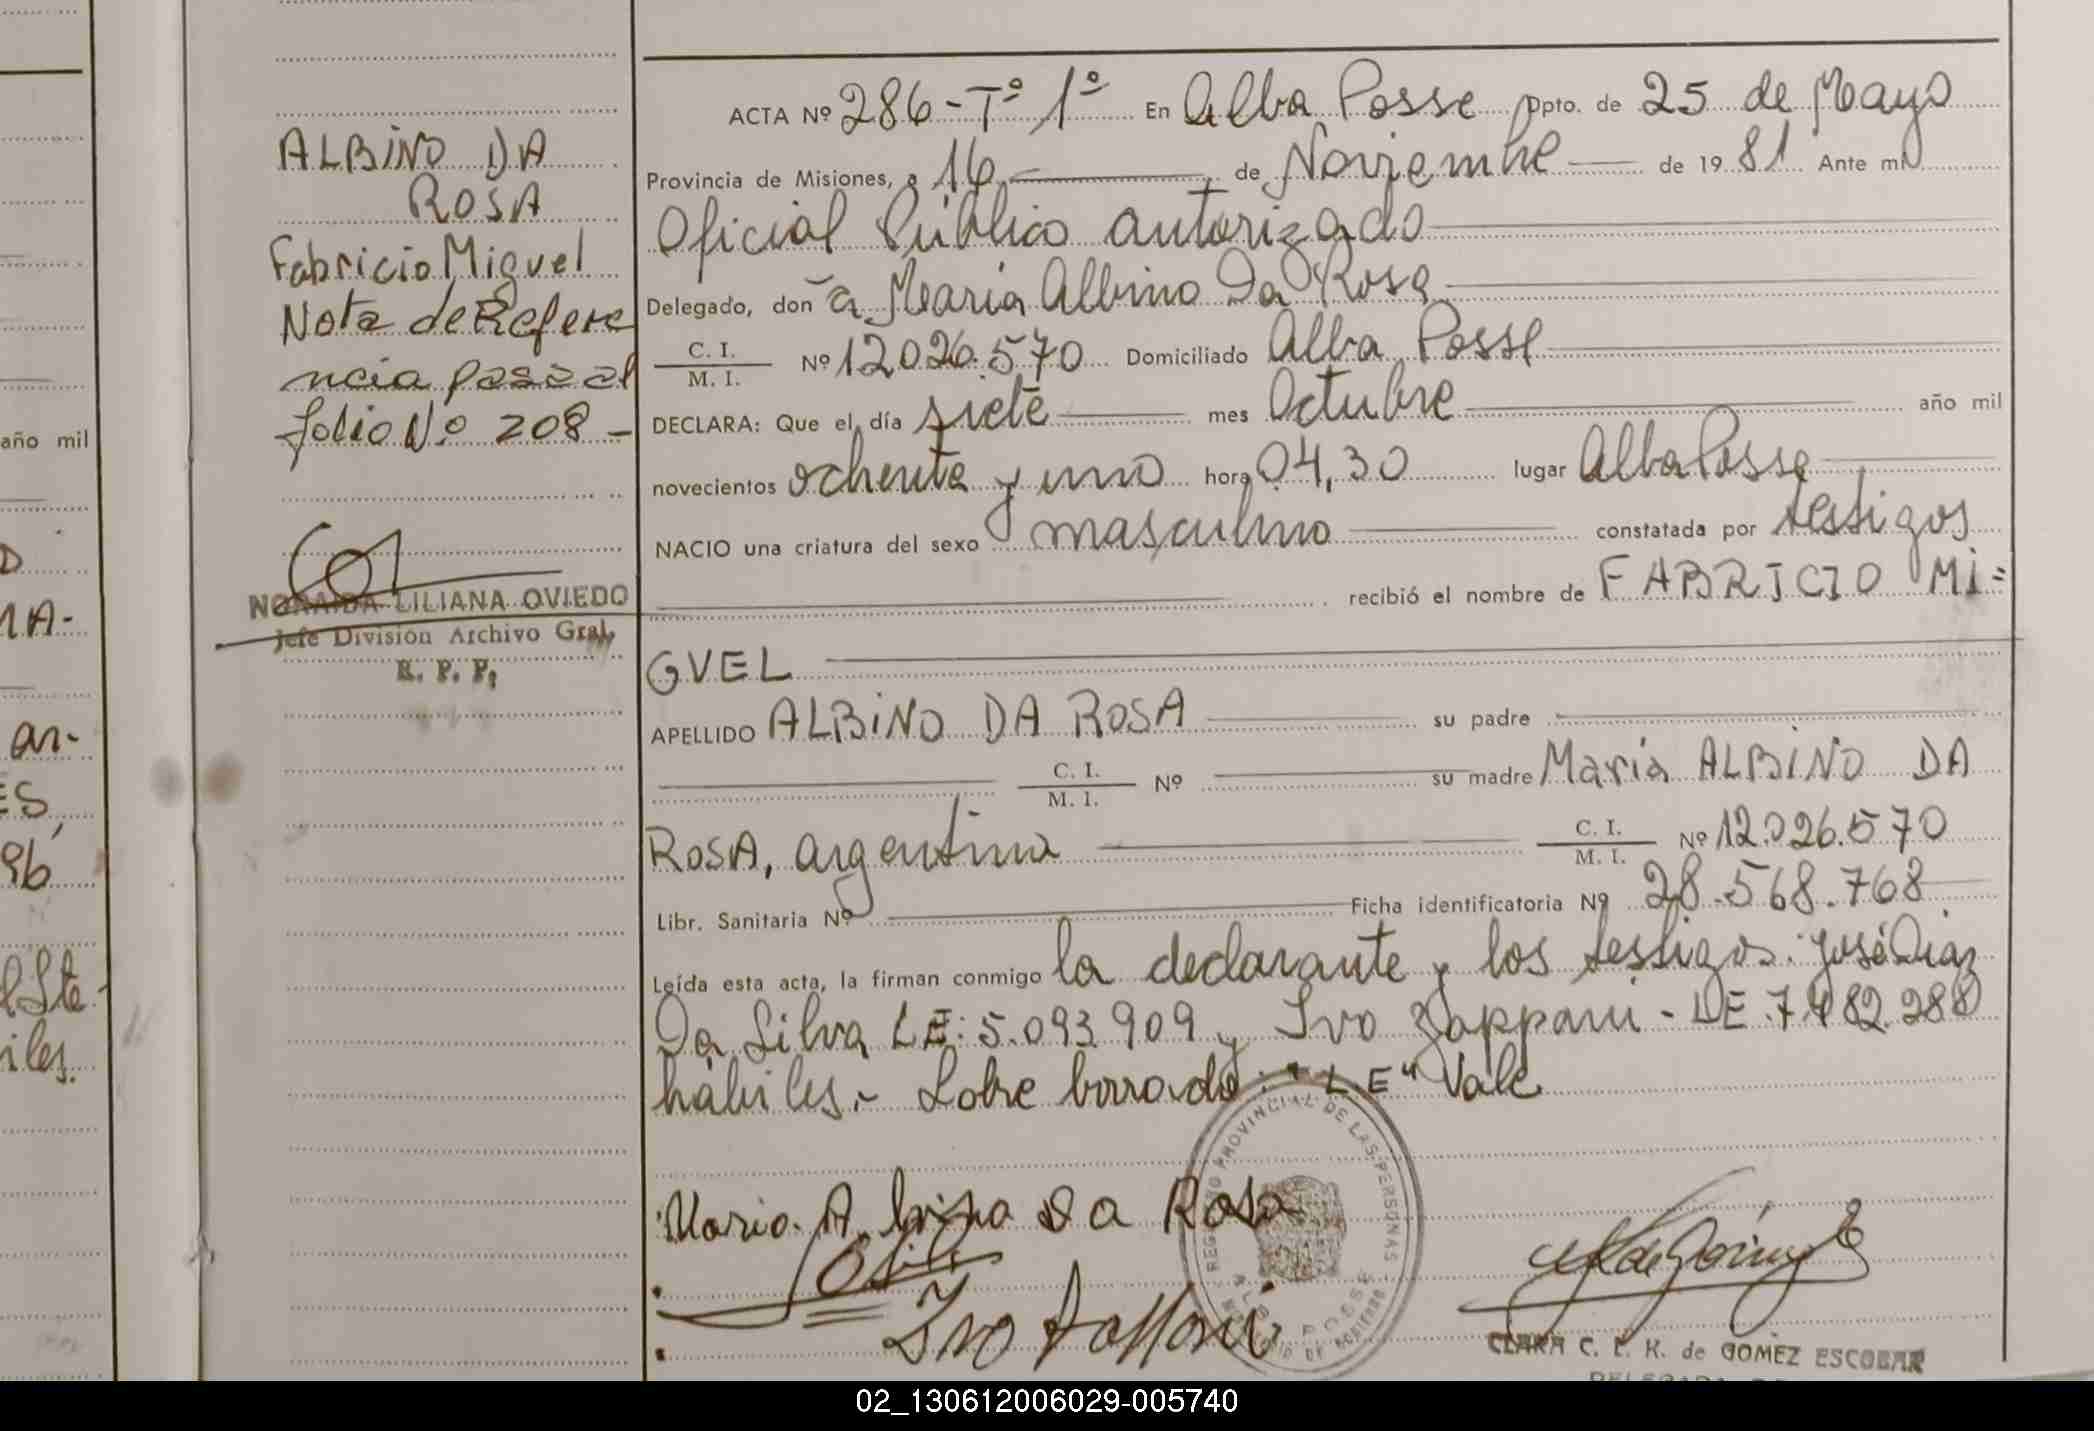 ALBINO DA
ROSA
Fabricio Miguel
Nota de Refere
ncia pasa al
folio Nº 208 -
NORAIDA LILIANA OVIEDO
Jefe División Archivo Gral.
R. P. P.
ACTA Nº 286 - Tº 1º En Alba Posse Dpto. de 25 de Mayo
Provincia de Misiones, a 16 de Noviembre de 19 81 Ante mi
Oficial Público autorizado
Delegado, don a María Albino Da Rosa
C. I. / M. I. Nº 12.026.570 Domiciliado Alba Posse
DECLARA: Que el día siete mes Octubre año mil
novecientos ochenta y uno hora 04,30 lugar Alba Posse
NACIO una criatura del sexo masculino constatada por testigos
recibió el nombre de FABRICIO MI=
GUEL
APELLIDO ALBINO DA ROSA su padre
C. I. / M. I. Nº su madre María ALBINO DA
ROSA, argentina C. I. / M. I. Nº 12.026.570
Libr. Sanitaria Nº Ficha identificatoria Nº 28.568.768
Leída esta acta, la firman conmigo la declarante y los testigos: José Díaz
Da Silva LE: 5.093.909 y Ivo Zappani - DE 7.482.288
hábiles.- Sobre borrado: "LE" Vale
REGISTRO PROVINCIAL DE LAS PERSONAS
ALBA POSSE
Maria A. Da Rosa
Ivo
CLARA C. L. K. de GOMEZ ESCOBAR
año mil
MA-
an-
ES,
96
iles.
02_130612006029-005740